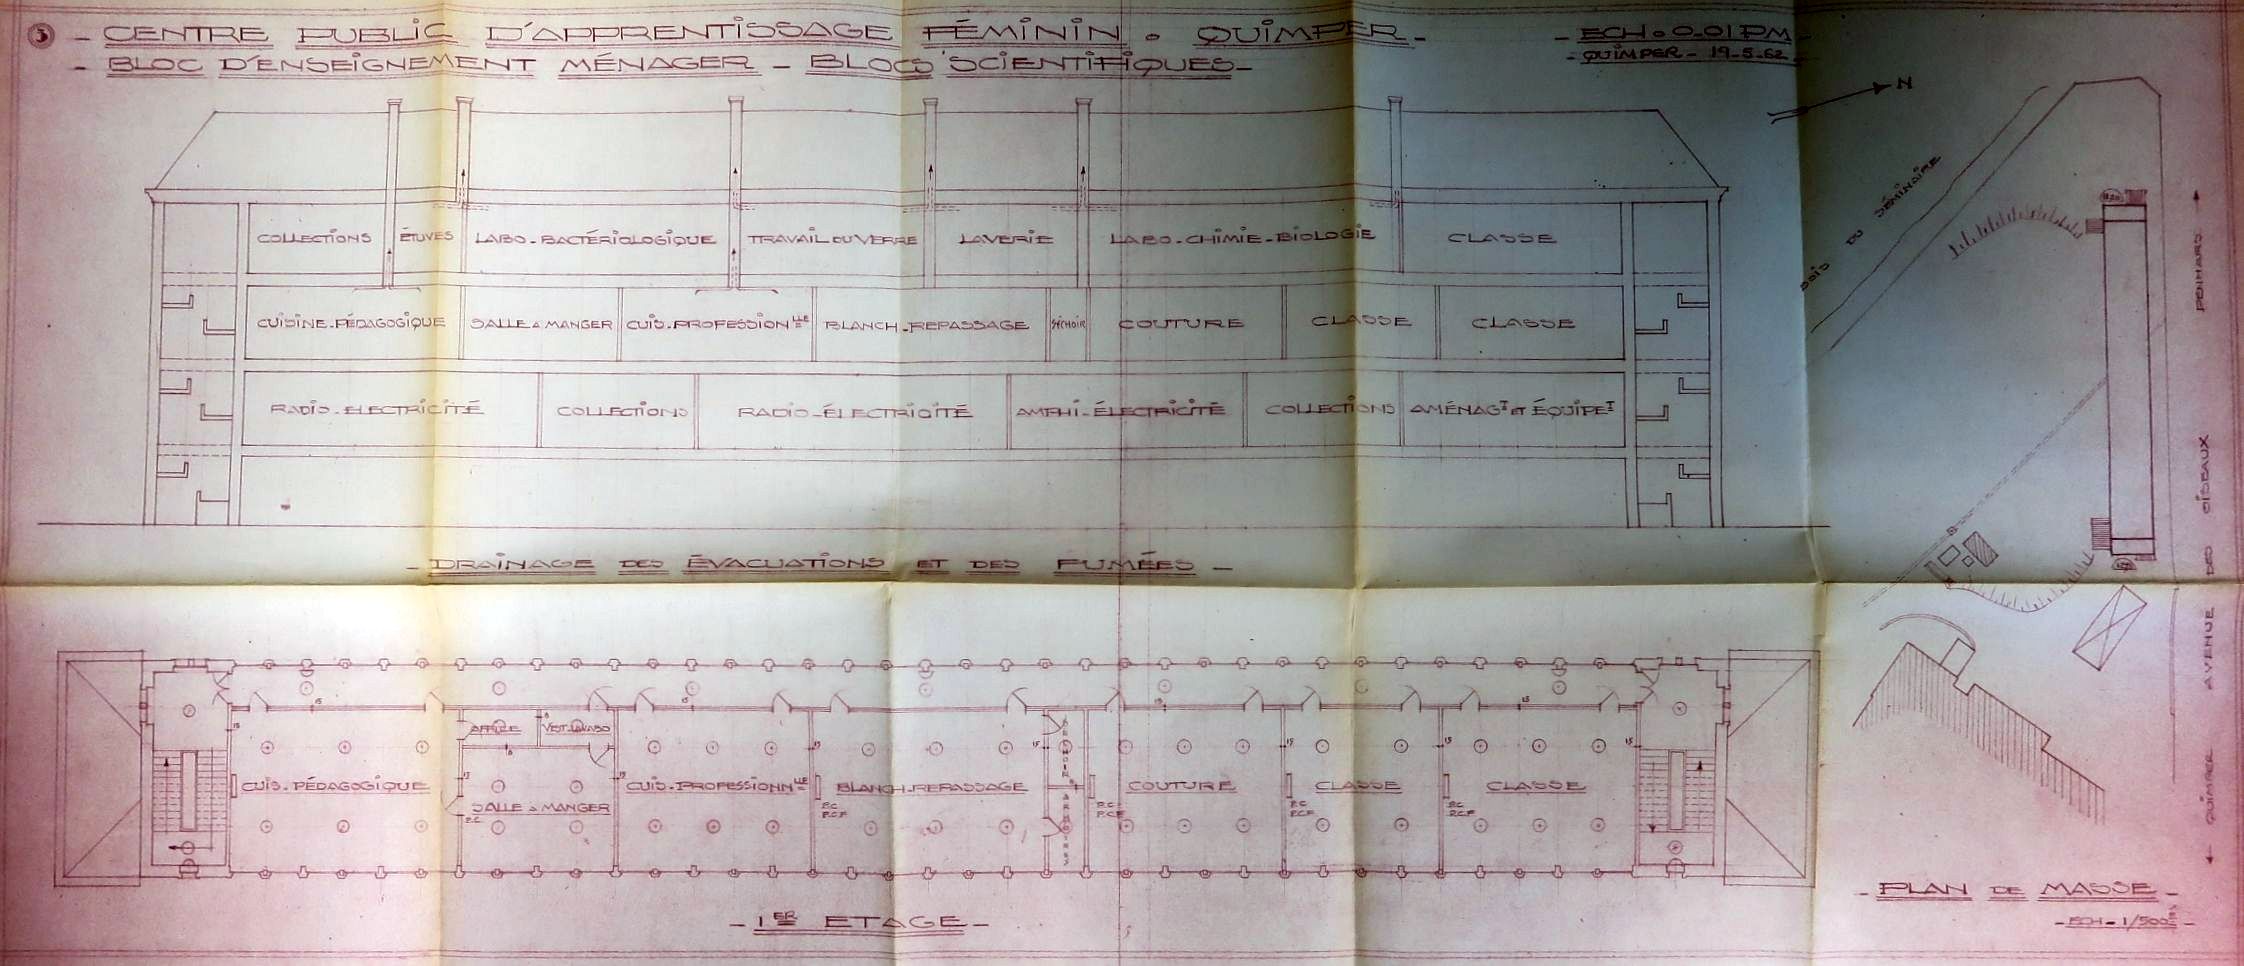 3 - CENTRE PUBLIC D'APPRENTISSAGE FÉMININ. QUIMPER -
- BLOC D'ENSEIGNEMENT MÉNAGER - BLOCS SCIENTIFIQUES -
- ECH. 0.01 PM -
- QUIMPER - 19-5-62
N
BOIS DU SÉMINAIRE
COLLECTIONS ÉTUVES LABO-BACTÉRIOLOGIQUE TRAVAIL DU VERRE LAVERIE LABO-CHIMIE-BIOLOGIE CLASSE
CUISINE-PÉDAGOGIQUE SALLE A MANGER CUIS-PROFESSIONLLE BLANCH-REPASSAGE SÉCHOIR COUTURE CLASSE CLASSE
RADIO-ELECTRICITÉ COLLECTIONS RADIO-ÉLECTRICITÉ AMPHI-ÉLECTRICITÉ COLLECTIONS AMÉNAGT ET ÉQUIPET
- DRAINAGE DES ÉVACUATIONS ET DES FUMÉES -
QUIMPER AVENUE DES OISEAUX PENHARS
OFFICE VEST-LAVABO
CUIS-PÉDAGOGIQUE SALLE A MANGER CUIS-PROFESSIONNLLE BLANCH-REPASSAGE SÉCHOIR ARMOIRES COUTURE CLASSE CLASSE
P.C. P.C. P.C. P.C. P.C.
P.C.F. P.C.F. P.C.F. P.C.F.
15 15 15 15 15 15 15 15 15
- 1ER ETAGE -
- PLAN DE MASSE -
- ECH - 1/500E -